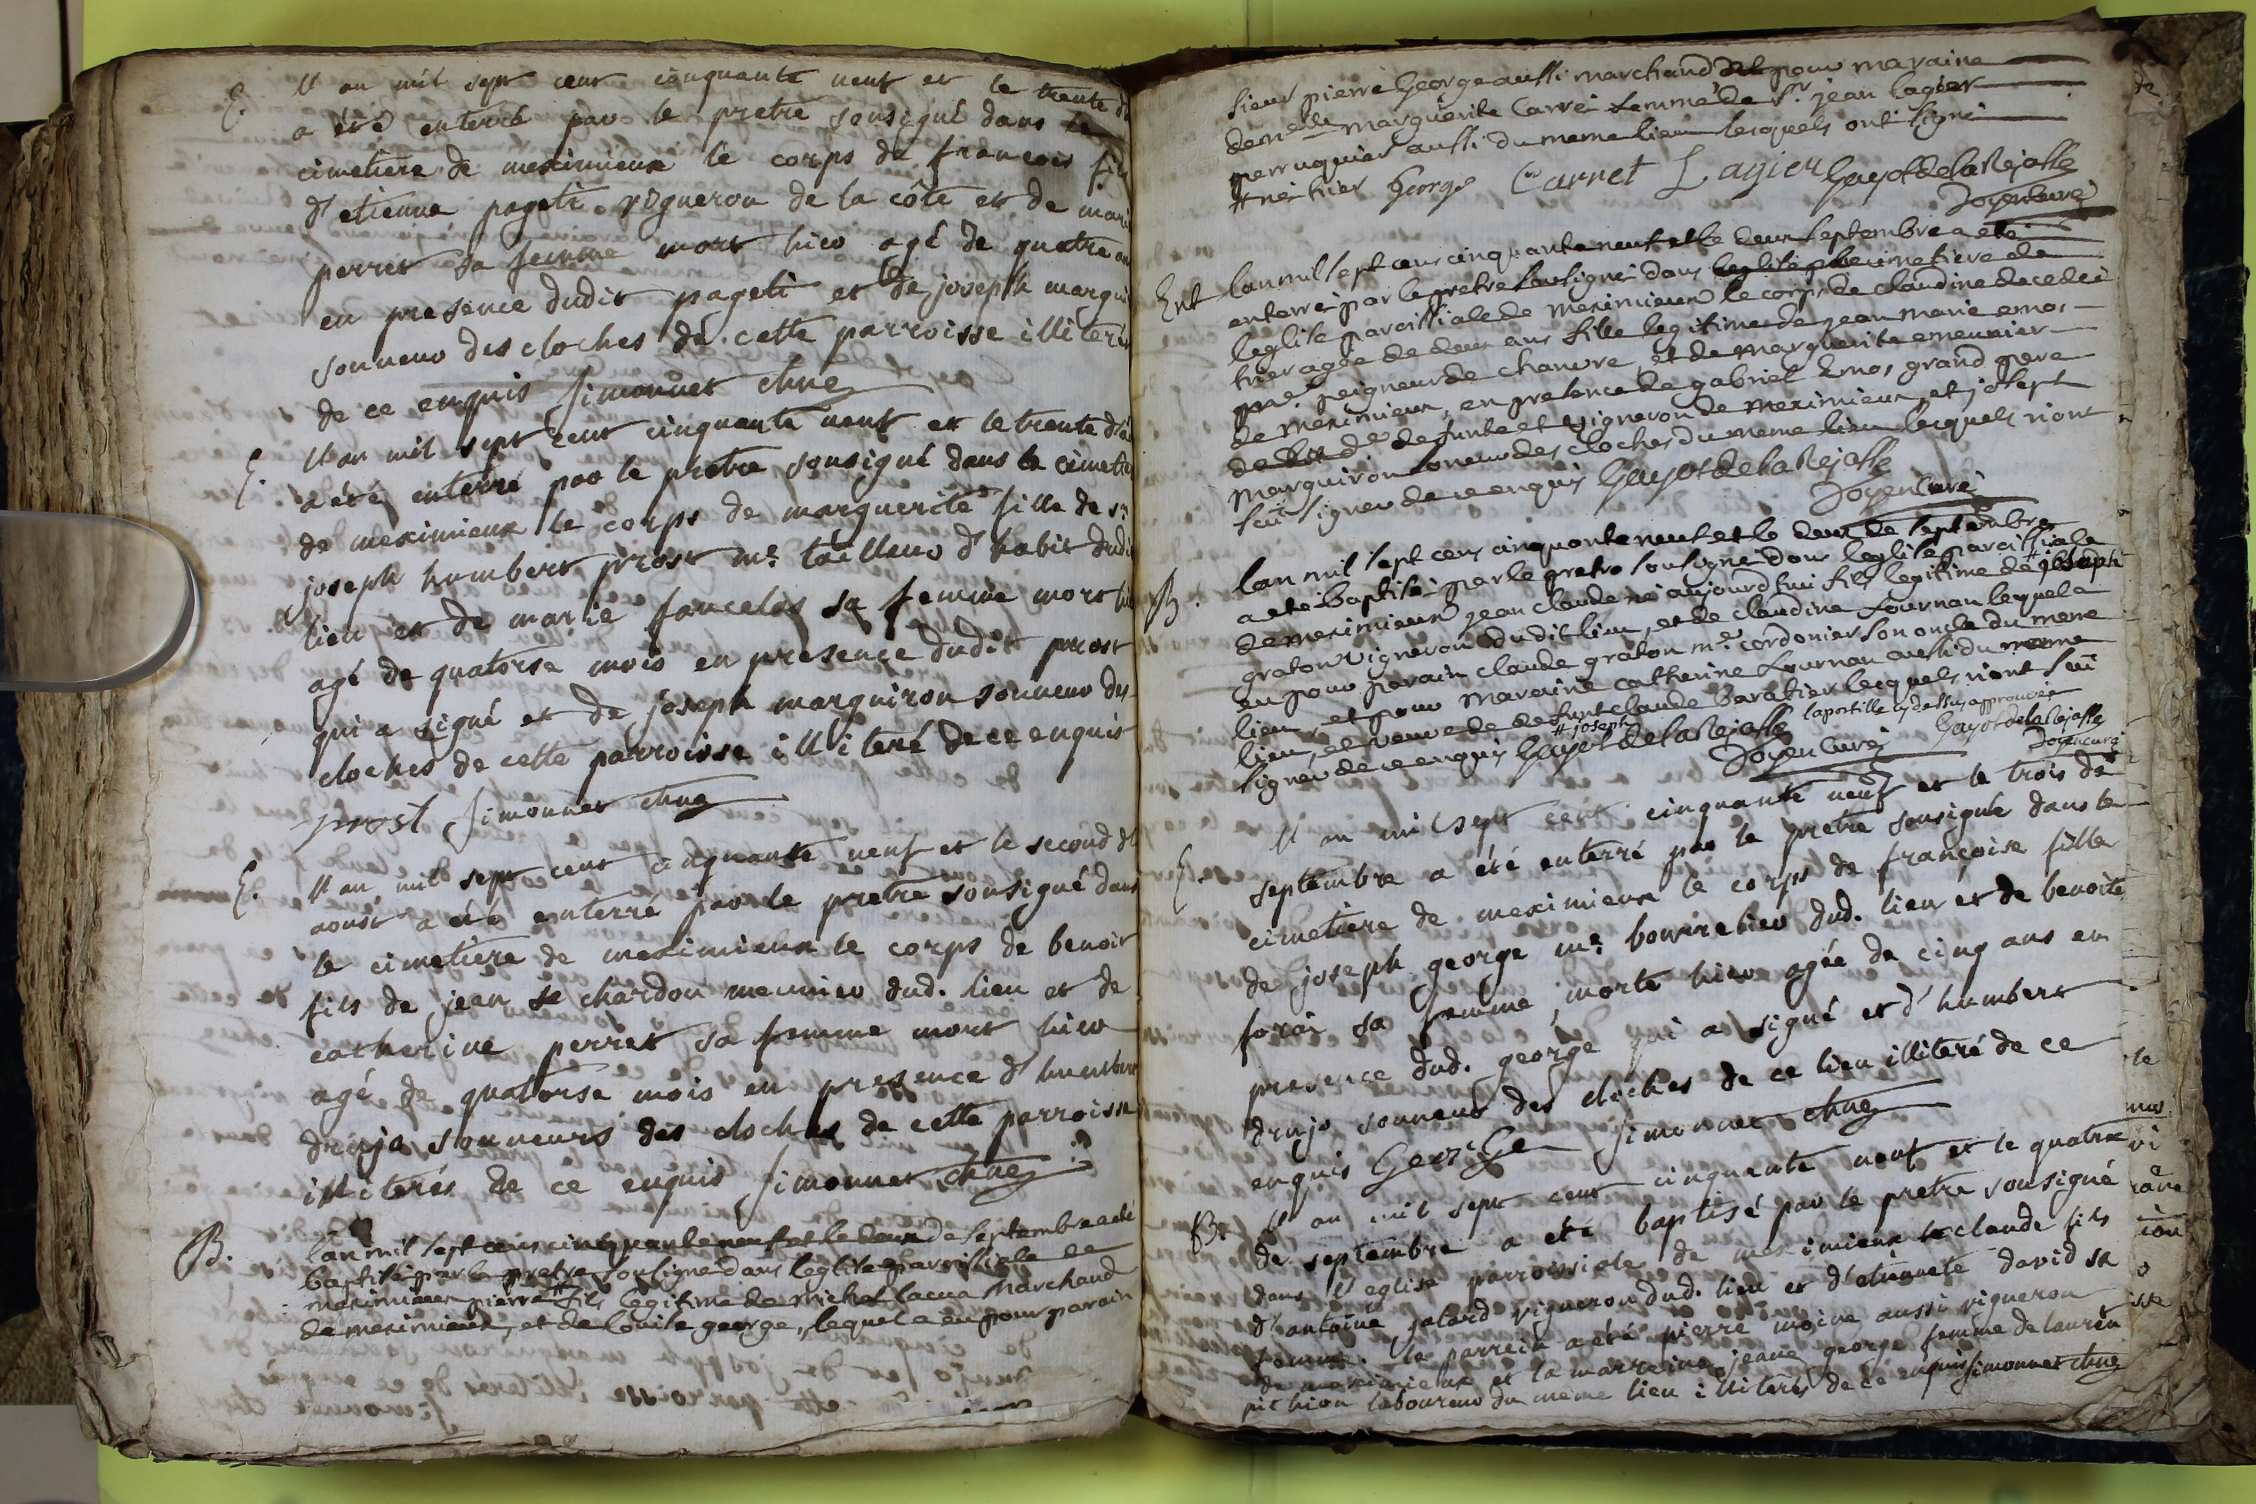 E. L'an mil sept cent cinquante neuf et le trente
a été enterré par le pretre sousigné dans le
cimetiere de meximieux le corps de françois fils
d'etienne pageti vigneron de la côte et de marie
perret sa femme mort hier agé de quatre ans
en presence dudit pageti et de joseph marquiron
sonneur des cloches de cette parroisse illiterés
de ce enquis simonnet chne
E. L'an mil sept cent cinquante neuf et le trente
a été enterré par le pretre sousigné dans le cimetiere
de meximieux le corps de marguerite fille de sr
joseph humbert prost me tailleur d'habit dudit
lieu et de marie sa femme mort hier
agé de quatorse mois en presence dudit prost
qui a signé et de joseph marquiron sonneur des
cloches de cette parroisse illiteré de ce enquis
prost simonnet chne
E. L'an mil sept cent cinquante neuf et le second
aoust a été enterré par le pretre sousigné dans
le cimetiere de meximieux le corps de benoit
fils de jean chardon meunier dud. lieu et de
catherine perret sa femme mort hier
agé de quatorse mois en presence d'humbert
drujo sonneurs des cloches de cette parroisse
illiterés de ce enquis simonnet chne
B. lan mil sept cens cinquante neuf et le deux de septembre a eté
baptisé par le pretre sousigné dans leglise paroissiale de
meximieux pierre # fils legitime de michel lacua marchand
de meximieux, et de louise george, lequel a eu pour parain
sieur pierre George aussi marchand et pour maraine
demelle marguerite Carré femme de Sr. jean lagier
perruquier aussi du meme lieu lesquels ont signé
# né hier George Carret Lagier Guyot de la Rejasse
Doyen curé
Ent lan mil sept cens cinquante neuf et le deux septembre a eté
enterré par le pretre sousigné dans le cimetiere de
leglise paroissiale de meximieux le corps de claudine decedée
hier agée de deux ans fille legitime de jean marie emos
me. peigneur de chanvre, et de marguerite emeunier
de meximieux, en presence de gabriel Emos, grand pere
de defunte et vigneron de meximieux, et joseph
marquiron soneur des cloches du meme lieu lesquels n'ont
sçu signer de ce enquis Guyot de la Rejasse
Doyen Curé
B. lan mil sept cens cinquante neuf et le deux de septembre
a eté baptisé par le pretre sousigné dans leglise paroissiale
de meximieux jean claude né aujourd'hui fils legitime de # joseph
graton vigneron dudit lieu, et de claudine fournan lequel a
eu pour parain claude graton me. cordonier son oncle du meme
lieu, et pour maraine catherine fournan aussi du meme
lieu, et veuve de defunt claude baratier lesquels n'ont sçu
signer de ce enquis # joseph Guyot de la Rejasse lapostille cy dessus approuvée
Doyen Curé Guyot de la Rejasse
Doyen curé
E. L'an mil sept cent cinquante neuf et le trois de
septembre a été enterré par le pretre sousigné dans le
cimetiere de meximieux le corps de françoise fille
de joseph george me bourrelier dud. lieu et de benoite
forai sa femme, morte hier agée de cinq ans en
presence dud. george qui a signé et d'humbert
drujo sonneur des cloches de ce lieu illiteré de ce
enquis GeorGe simonnet chne
B. L'an mil sept cent cinquante neuf et le quatre
de septembre a eté baptisé par le pretre sousigné
dans l'eglise parroissiale de meximieux claude fils
d'antoine jalard vigneron dud. lieu et d'etiennete david sa
femme. le parrein a été pierre moine aussi vigneron
de meximieux et la marreine jeane george femme de lauren
pichion laboureur du meme lieu illiterés de ce enquis simonnet chne